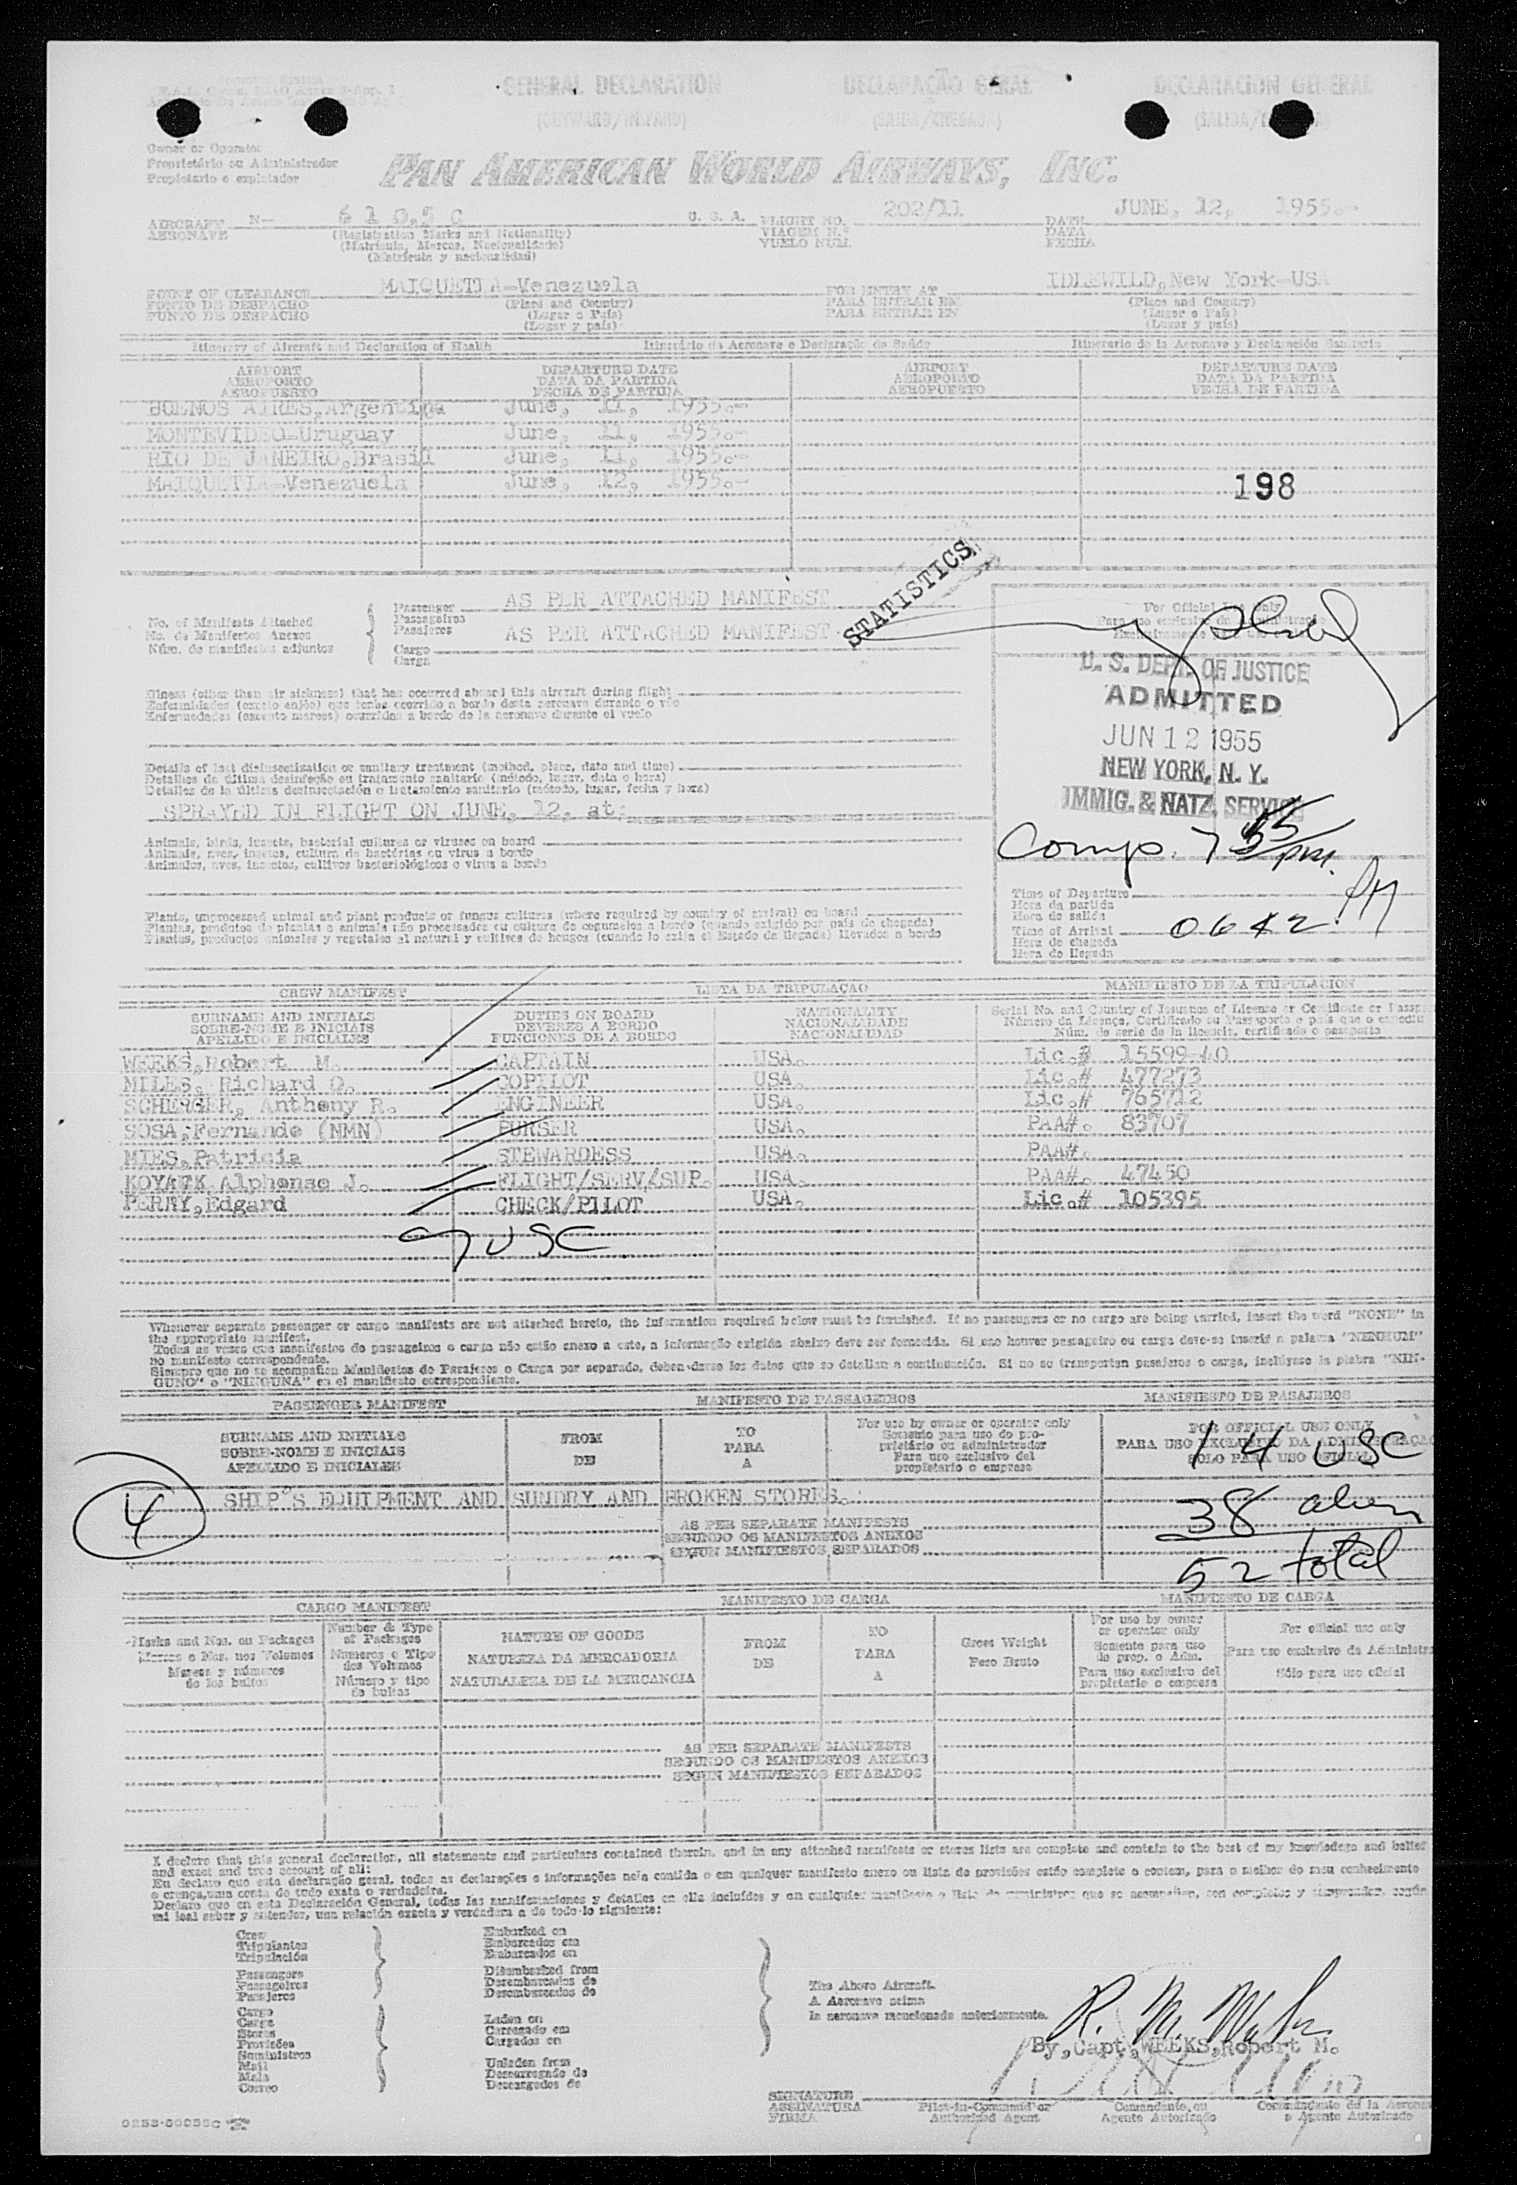 GENERAL DECLARATION DECLARAÇÃO GERAL DECLARACION GENERAL
(OUTWARD/INWARD) (SAIDA/CHEGADA)
Owner or Operator
Proprietário ou Administrador
Propietario o explotador
PAN AMERICAN WORLD AIRWAYS, INC.
AIRCRAFT N- U. S. A. FLIGHT NO. 202/11 DATE JUNE, 12, 1955.-
AERONAVE (Registration Marks and Nationality) VIAGEM N.º DATA
(Matrícula, Marcas, Nacionalidade) VUELO NUM. FECHA
(Matrícula y nacionalidad)
POINT OF CLEARANCE MAIQUETIA-Venezuela FOR ENTRY AT IDLEWILD,New York-USA
PONTO DE DESPACHO (Place and Country) PARA ENTRAR EM (Place and Country)
PUNTO DE DESPACHO (Lugar o País) PARA ENTRAR EN (Lugar o País)
(Lugar y país) (Lugar y país)
Itinerary of Aircraft and Declaration of Health Itinerário da Aeronave e Declaração de Saúde Itinerario de la Aeronave y Declaración Sanitaria
AIRPORT DEPARTURE DATE AIRPORT DEPARTURE DATE
AEROPORTO DATA DA PARTIDA AEROPORTO DATA DA PARTIDA
AEROPUERTO FECHA DE PARTIDA AEROPUERTO FECHA DE PARTIDA
BUENOS AIRES,Argentina June, 11, 1955.-
MONTEVIDEO-Uruguay June, 11, 1955.-
RIO DE JANEIRO,Brasil June, 11, 1955.-
MAIQUETIA-Venezuela June, 12, 1955.-
198
STATISTICS
No. of Manifests Attached Passenger AS PER ATTACHED MANIFEST
No. de Manifestos Anexos Passageiros
Núm. de manifiestos adjuntos Pasajeros AS PER ATTACHED MANIFEST
Cargo
Carga
For Official Use Only
U. S. DEPT. OF JUSTICE
ADMITTED
JUN 12 1955
NEW YORK, N. Y.
IMMIG. & NATZ. SERVICE
Comp. 7 55 pm.
Illness (other than air sickness) that has occurred aboard this aircraft during flight
Enfermidades (exceto enjôo) que tenha ocorrido a bordo desta aeronave durante o vôo
Enfermedades (excepto mareos) ocurridas a bordo de la aeronave durante el vuelo
Details of last disinsectization or sanitary treatment (method, place, date and time)
Detalhes da última desinfeção ou tratamento sanitario (método, lugar, data e hora)
Detalles de la última desinsectación o tratamiento sanitario (método, lugar, fecha y hora)
SPRAYED IN FLIGHT ON JUNE, 12, at:
Animals, birds, insects, bacterial cultures or viruses on board
Animais, aves, insetos, cultura de bactérias ou virus a bordo
Animales, aves, insectos, cultivos bacteriológicos o virus a bordo
Plants, unprocessed animal and plant products or fungus cultures (where required by country of arrival) on board
Plantas, produtos de plantas e animais não processados ou cultura de cogumelos a bordo (quando exigido por país de chegada)
Plantas, productos animales y vegetales al natural y cultivos de hongos (cuando lo exija el Estado de llegada) llevados a bordo
Time of Departure
Hora da partida
Hora de salida
Time of Arrival 0642 PM
Hora de chegada
Hora de llegada
CREW MANIFEST LISTA DA TRIPULAÇAO MANIFIESTO DE LA TRIPULACION
SURNAME AND INITIALS DUTIES ON BOARD NATIONALITY Serial No. and Country of Issuance of License or Certificate or
SOBRE-NOME E INICIAIS DEVERES A BORDO NACIONALIDADE Número da Licença, Certificado ou Passaporte e país que o
APELLIDO E INICIALES FUNCIONES DE A BORDO NACIONALIDAD Núm. de serie de la licencia, certificado o pasaporte
WEEKS,Robert M. CAPTAIN USA. Lic.# 15599-40
MILES, Richard O. COPILOT USA. Lic.# 477273
SCHERGER, Anthony R. ENGINEER USA. Lic.# 765712
SOSA,Fernando (NMN) PURSER USA. PAA#. 83707
MIES,Patricia STEWARDESS USA. PAA#.
Alphonse J. FLIGHT/SERV/SUP. USA. PAA#. 47450
PERRY,Edgard CHECK/PILOT USA. Lic.# 105395
7 USC
Whenever separate passenger or cargo manifests are not attached hereto, the information required below must be furnished. If no passengers or no cargo are being carried, insert the word "NONE" in
the appropriate manifest.
Todas as vezes que manifestos de passageiros o carga não estão anexo a este, a informação exigida abaixo deve ser fornecida. Si não houver passageiro ou carga deve-se inserir a palavra "NENHUM"
no manifesto correspondente.
Siempre que no se acompañen Manifiestos de Pasajeros o Carga por separado, deben darse los datos que se detallan a continuación. Si no se transportan pasajeros o carga, inclúyase la plabra "NIN-
GUNO" o "NINGUNA" en el manifiesto correspondiente.
PASSENGER MANIFEST MANIFESTO DE PASSAGEIROS MANIFIESTO DE PASAJEROS
SURNAME AND INITIALS FROM TO For use by owner or operator only FOR OFFICIAL USE ONLY
SOBRE-NOME E INICIAIS DE PARA Somente para uso do proprietário ou administrador PARA USO EXCLUSIVO DA ADMINISTRAÇAO
APELLIDO E INICIALES A Para uso exclusivo del propietario o empresa SOLO PARA USO OFICIAL
14 USC
4 SHIP'S EQUIPMENT AND SUNDRY AND BROKEN STORES.
38 alien
AS PER SEPARATE MANIFESTS
SEGUNDO OS MANIFESTOS ANEXOS
SEGUN MANIFIESTOS SEPARADOS
52 total
CARGO MANIFEST MANIFESTO DE CARGA MANIFIESTO DE CARGA
Marks and Nos. on Packages Number & Type of Packages NATURE OF GOODS FROM TO Gross Weight For use by owner or operator only For official use only
Marcas e Nos. nos Volumes Números e Tipo dos Volumes NATUREZA DA MERCADORIA DE PARA Peso Bruto Somente para uso do prop. o Adm. Para uso exclusivo da
Marcas y números de los bultos Número y tipo de bultos NATURALEZA DE LA MERCANCIA A Para uso exclusivo del propietario o empresa Sólo para uso oficial
AS PER SEPARATE MANIFESTS
SEGUNDO OS MANIFESTOS ANEXOS
SEGUN MANIFIESTOS SEPARADOS
I declare that this general declaration, all statements and particulars contained therein, and in any attached manifests or stores lists are complete and contain to the best of my knowledge and belief
and exact and true account of all:
Eu declaro que esta declaração geral, todas as declarações e informações nela contida o em qualquer manifesto anexo ou lista de provisões estão completo e contem, para o melhor do meu conhecimento
e crença, uma conta de todo exata o verdadeira.
Declaro que en esta Declaración General, todas las manifestaciones y detalles en ella incluídos y en cualquier manifiesto o lista de suministros que se acompañan, son completos y
mi leal saber y entender, una relación exacta y verdadera a de todo lo siguiente:
Crew Embarked on
Tripulantes Embarcados em
Tripulación Embarcados en
Passengers Disembarked from
Passageiros Desembarcados de
Pasajeros Desembarcados de
The Above Aircraft.
A Aeronave acima
la aeronave mencionada anteriormente.
Cargo Laden on
Carga Carregado em
Stores Cargados en
Provisões
Suministros
Mail Unladen from
Mala Descarregado de
Correo Descargados de
By,Capt,WEEKS,Robert M.
SIGNATURE
ASSINATURA Pilot-in-Command or Comandante, ou
FIRMA Authorized Agent Agente Autorizado o Agente Autorizado